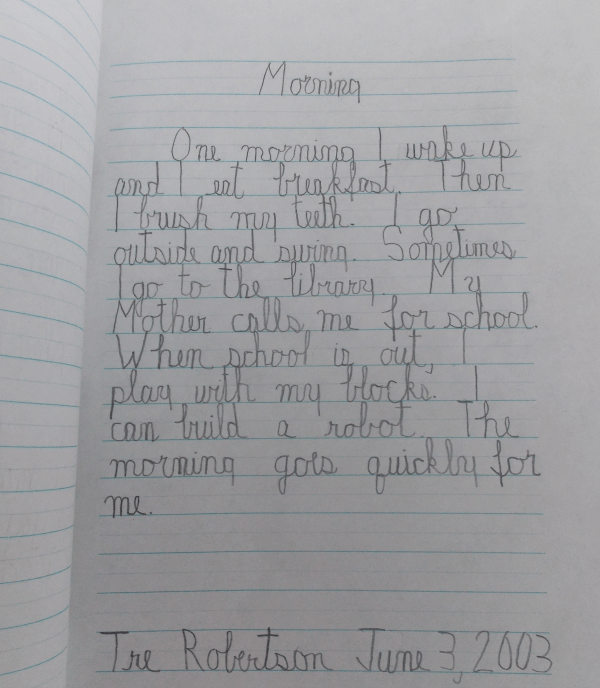 Morning
One morning I wake up
and I eat breakfast. Then
I brush my teeth. I go
outside and swing. Sometimes
I go to the library. My
Mother calls me for school.
When school is out, I
play with my blocks. I
can build a robot. The
morning goes quickly for
me.
Tre Robertson June 3, 2003